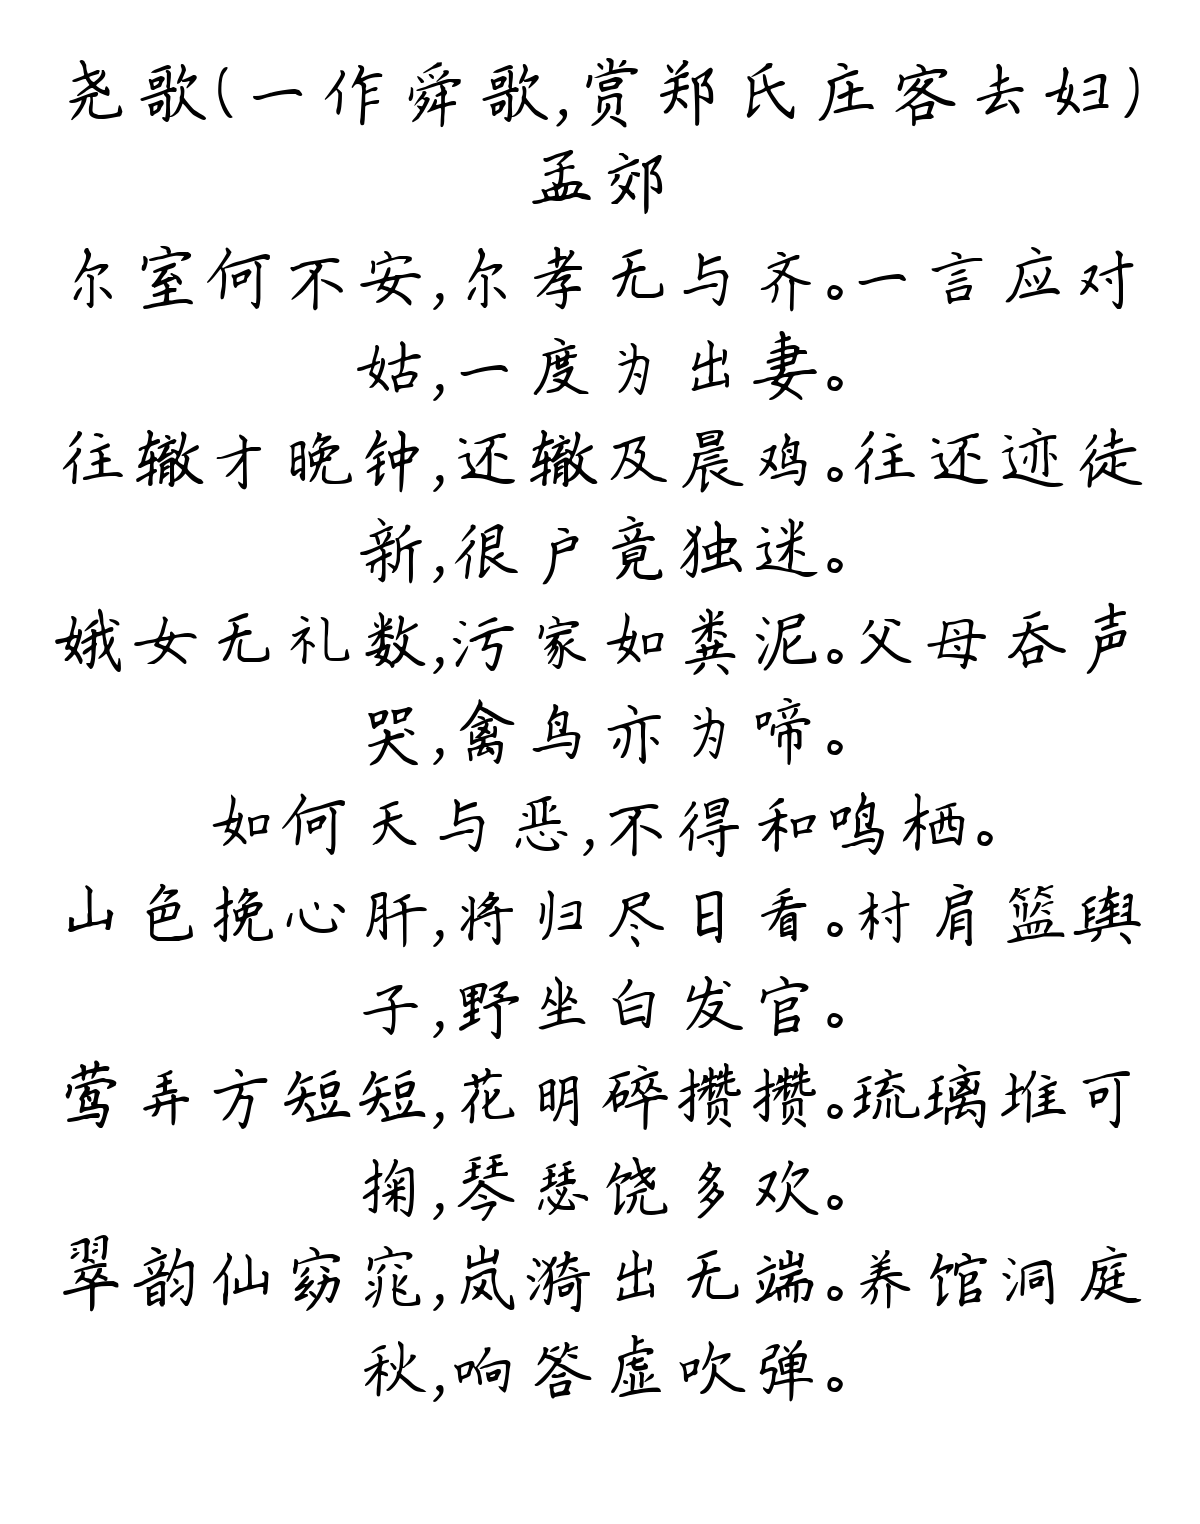 尧歌(一作舜歌,赏郑氏庄客去妇)
孟郊
尔室何不安,尔孝无与齐。一言应对
姑,一度为出妻。
往辙才晚钟,还辙及晨鸡。往还迹徒
新,很户竟独迷。
娥女无礼数,污家如粪泥。父母吞声
哭,禽鸟亦为啼。
如何天与恶,不得和鸣栖。
山色挽心肝,将归尽日看。村肩篮舆
子,野坐白发官。
莺弄方短短,花明碎攒攒。琉璃堆可
掬,琴瑟饶多欢。
翠韵仙窈窕,岚漪出无端。养馆洞庭
秋,响答虚吹弹。